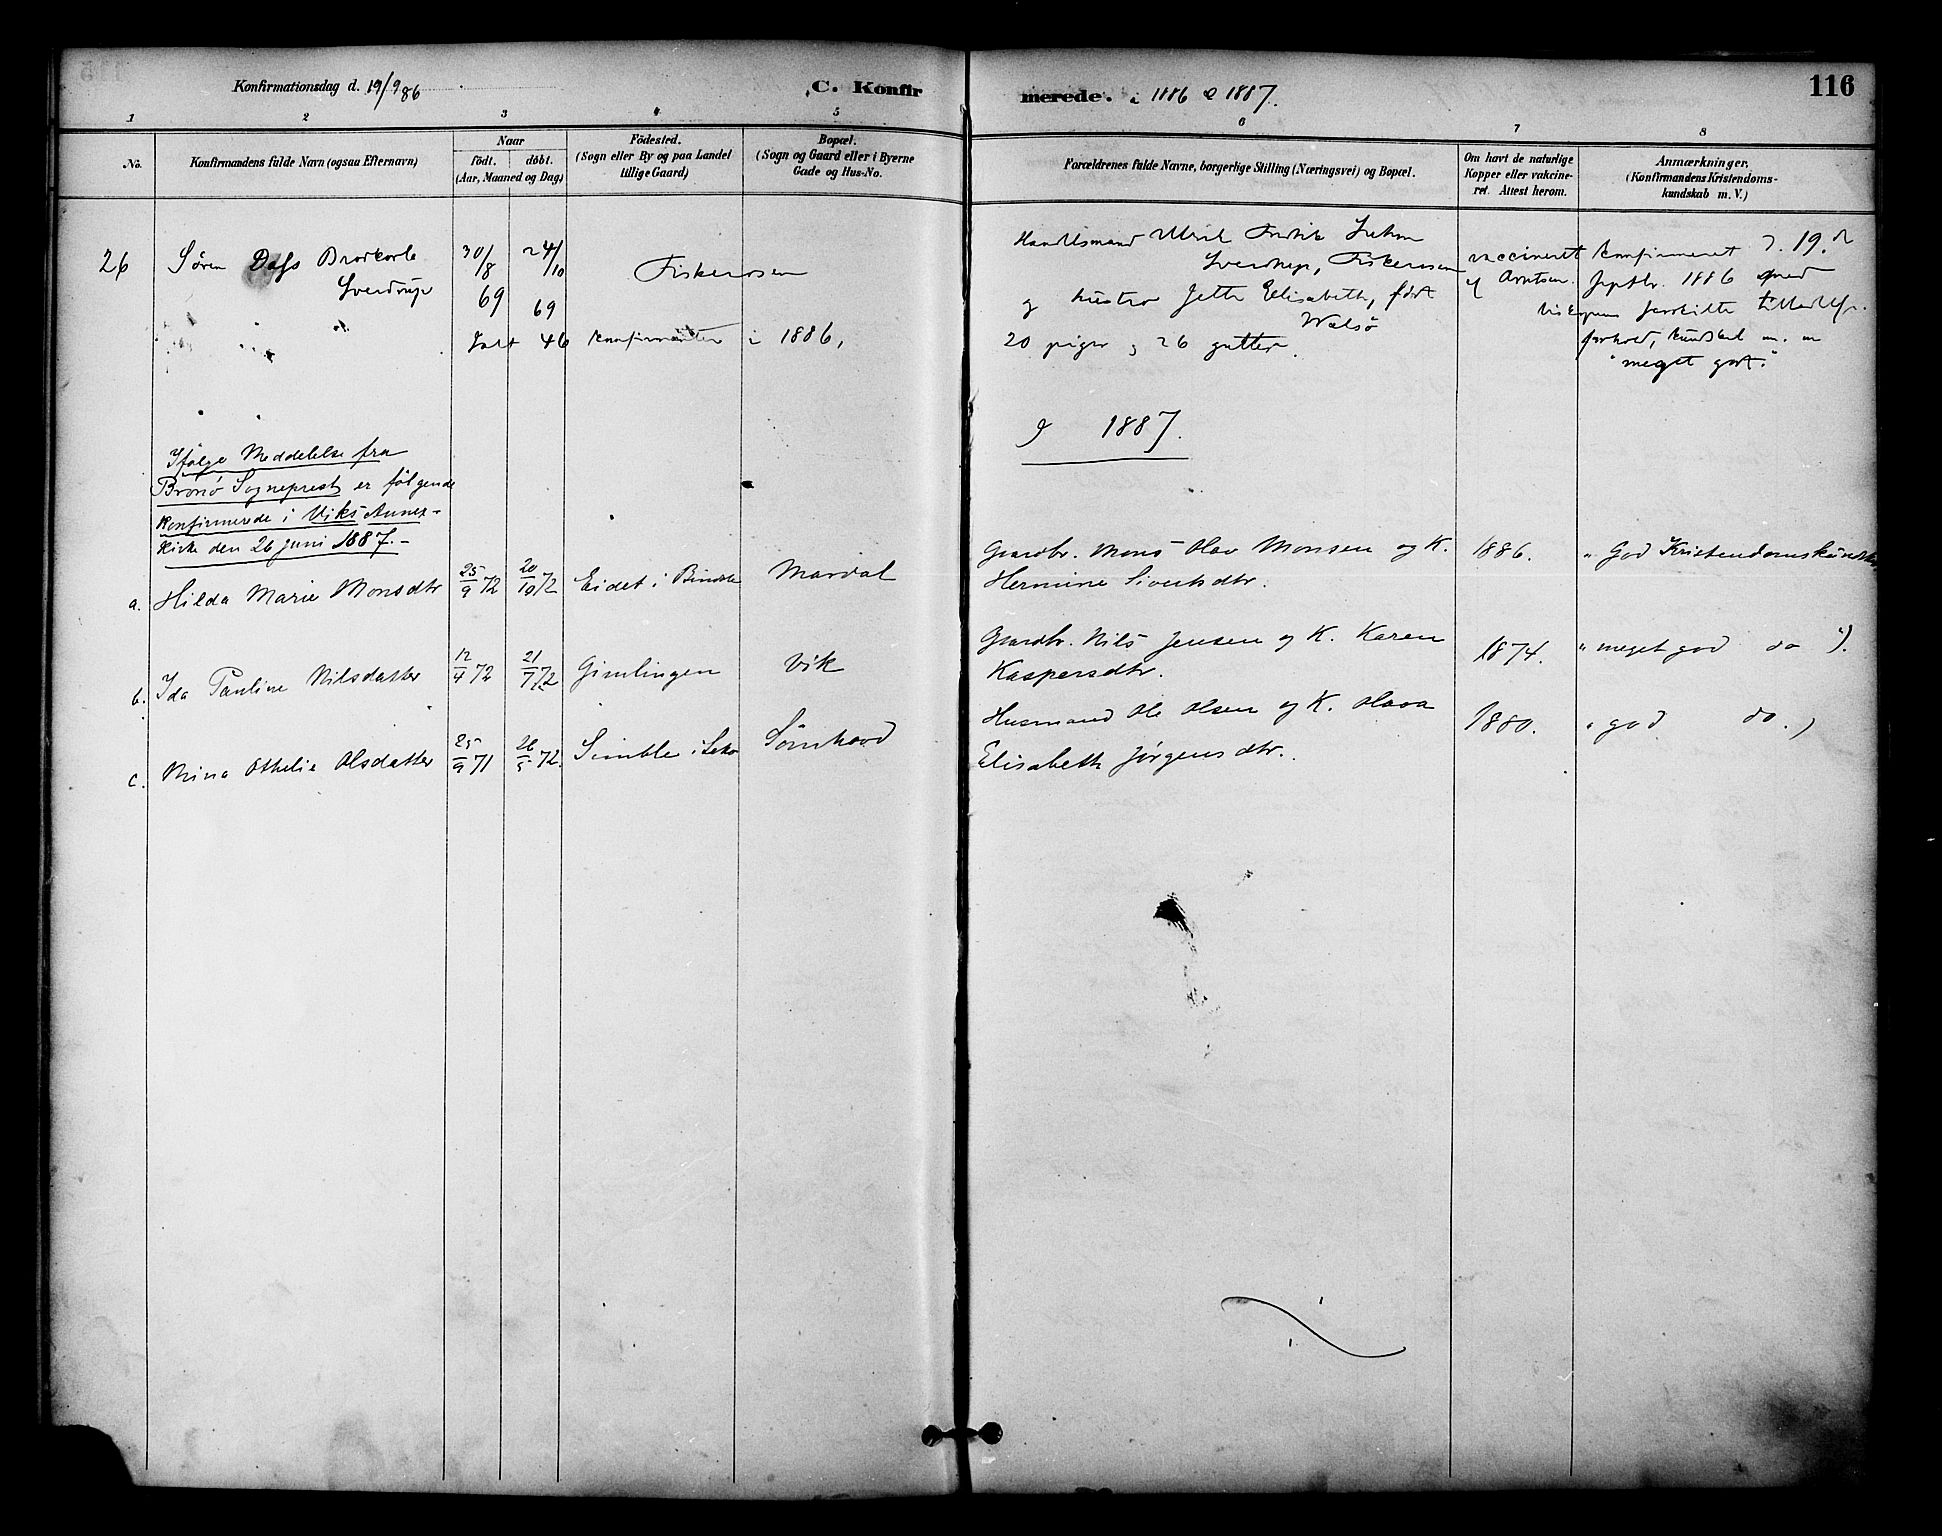 Konfirmationsdag d. 19/9 86
C. Konfir
merede. i 1886 & 1887.
116
1 2 3 4 5 6 7 8
No.
Konfirmandens fulde Navn (ogsaa Efternavn)
Naar
födt. döbt.
(Aar, Maaned og Dag)
Födested.
(Sogn eller By og paa Landet
tillige Gaard)
Bopæl.
(Sogn og Gaard eller i Byerne
Gade og Hus-No.
Forældrenes fulde Navne, borgerlige Stilling (Næringsvei) og Bopæl.
Om havt de naturlige
Kopper eller vakcine-
ret. Attest herom.
Anmærkninger,
(Konfirmandens Kristendoms-
kundskab m. V.)
26 Sören Dass Brodkorb
Sverdrup
30/8 69
24/10 69
Fiskerosen
Handelsmand Ulrik Fredrik
Sverdrup, Fiskerosen
og hustro Jette Elisabeth, født
Walsö
vaccineret
af Arntsen.
konfirmeret d. 19. d
Septbr. 1886 med
biskopens
forhold, kundskab m. m
"meget godt."
Ialt 46 konfirmanter i 1886,
20 piger og 26 gutter.
I 1887.
Ifølge Meddelelse fra
Brønø Sogneprest er følgende
konfirmerede i Viks Annex-
kirke den 26 juni 1887. -
a. Hilda Marie Monsdtr 25/9 72 20/10 72 Eidet i Bindalen Mardal
Gaardbr. Mons Olav Monsen og K.
Hermine Sivertsdtr.
1886.
" God Kristendomskundsk
b. Ida Pauline Nilsdatter 12/4 72 21/7 72 Gimlingen Vik
Gaardbr. Nils Jensen og K. Karen
Kaspersdtr.
1874.
" meget god do ").
c. Mina Othelie Olsdatter 25/9 71 26/5 72. Simble i Leka Sömhovd
Husmand Ole Olsen og K. Olava
Elisabeth Jørgensdtr.
1880.
" god do. )